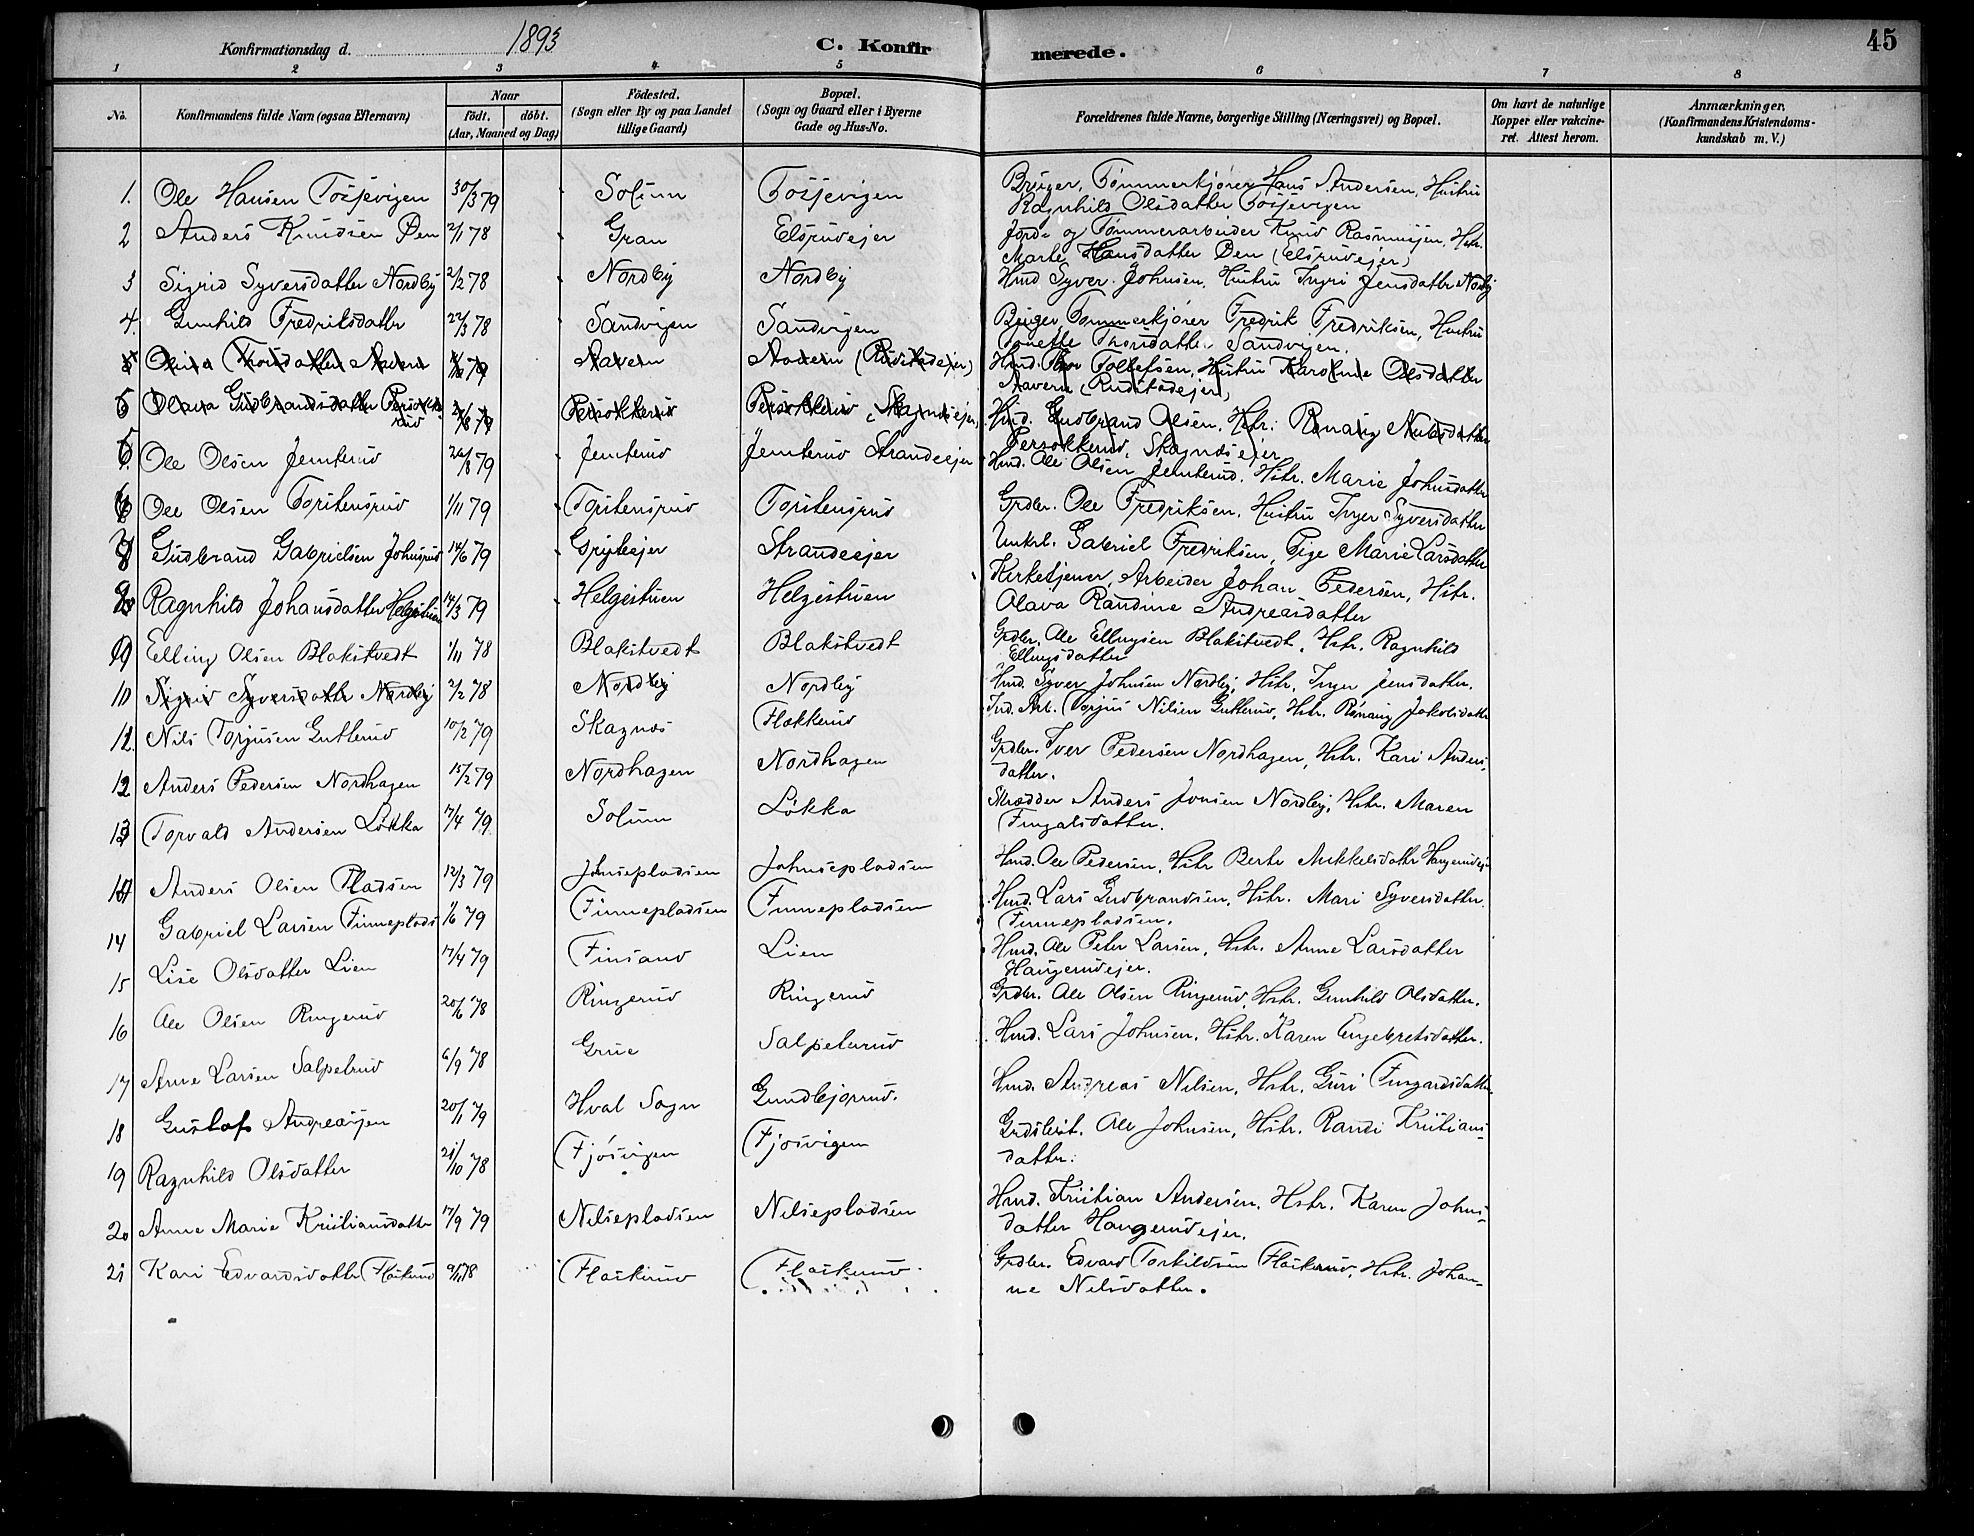 Konfirmationsdag d. 1893 C. Konfirmerede. 45
1 2 3 4 5 6 7 8
No. Konfirmandens fulde Navn (ogsaa Efternavn) Naar født. døbt. (Aar, Maaned og Dag) Fødested. (Sogn eller By og paa Landet tillige Gaard) Bopæl. (Sogn og Gaard eller i Byerne Gade og Hus-No. Forældrenes fulde Navne, borgerlige Stilling (Næringsvei) og Bopæl. Om havt de naturlige Kopper eller vakcineret. Attest herom. Anmærkninger. (Konfirmandens Kristendomskundskab m. V.)
1. Ole Hansen Fosjevigen 30/3 79 Solum Fosjevigen Bruger, Tømmerkjører Hans Andersen, Hustru
Ragnhild Olsdatter Fosjevigen
2 Anders Knudsen Øen 2/11 78 Gran Elsrudejer Jorde og Tømmerarbeider Knud Rasmussen, Hstr.
Marte Hansdatter Øen (Elsrudejer)
3 Sigrid Syversdatter Nordby 2/2 78 Nordby Nordby Hmd. Syver Johnsen, Hustru Ingri Jensdatter Nordby
4. Gunhild Fredriksdatter 22/3 78 Sandvigen Sandvigen Bruger, Tømmerkjører Fredrik Fredriksen, Hustru
Tonette Thorsdatter Sandvigen.
Hmd. Thor Tollefsen, Hustru Karoline Olsdatter
Olava Gudbrandsdatter Persokkerud Persokkerud Persokkerud, Skagnæsejer, Hmd. Gudbrand Olsen, Hstr. Rønaug Nubsdatter
Persokkerud, Skagnæsejer
5 Ole Olsen Jemterud 20/8 79 Jemterud Jemterud Strandeejer Hmd. Ole Olsen Jemterud, Hstr. Marie Johnsdatter
6 Ole Olsen Torstensrud 1/11 79 Torstensrud Torstensrud Grdbr. Ole Fredriksen, Hustru Inger Syversdatter
7 Gudbrand Gabrielsen Johnsrud 14/6 79 Strandeejer Unkrl. Gabriel Fredriksen, Pige Marie Larsdatter
8 Ragnhild Johansdatter Helgestuen 14/3 79 Helgestuen Helgestuen Kirketjener, Arbeider Johan Pedersen, Hstr.
Olava Randine Andreasdatter
9 Elling Olsen Blakstvedt 1/11 78 Blakstvedt Blakstvedt Grdbr. Ole Ellingsen Blakstvedt, Hstr. Ragnhild
Ellingsdatter
10 Sigrid Syversdatter Nordby 2/2 78 Nordby Nordby Hmd. Syver Johnsen Nordby, Hstr. Inger Jensdatter.
11. Nils Torjusen Gutterud 10/2 79 Skagnæs Flækkerud Ind. Arb. Torjus Nilsen Gutterud, Hstr. Rønaug Jakobsdatter
12 Anders Pedersen Nordhagen 15/2 79 Nordhagen Nordhagen Grdbr. Iver Pedersen Nordhagen, Hstr. Kari Andersdatter.
13 Torvald Andersen Løkka 17/4 79 Solum Løkka Skrædder Anders Jonsen Nordby, Hstr. Maren
Fingalsdatter.
Anders Olsen Pladsen 12/3 79 Johnsepladsen Johnsepladsen Hmd. Ole Pedersen, Hstr Berte Mikkelsdatter Haugerudejer
14 Gabriel Larsen Finneplads 1/6 79 Finnepladsen Finnepladsen Hmd. Lars Gudbrandsen, Hstr. Mari Syversdatter.
Finnepladsen.
15 Lise Olsdatter Lien 17/4 79 Finsand Lien Hmd. Ole Peter Larsen, Hstr. Anne Larsdatter
Haugerudejer.
16 Ole Olsen Ringerud 20/6 78 Ringerud Ringerud Grdbr. Ole Olsen Ringerud, Hstr. Gunhild Olsdatter.
17 Arne Larsen Salpeterud 6/9 78 Grue Salpeterud Hmd. Lars Johnsen, Hstr. Karen Engebretsdatter.
18 Gustaf Andreassen 20/1 79 Hval Sogn Gundbjørrud. Hmd. Andreas Nilsen, Hstr. Guri Fingardsdatter.
19 Ragnhild Olsdatter 21/10 78 Fjøsvigen Fjøsvigen Ole Johnsen, Hstr. Randi Kristiansdatter.
20 Anne Marie Kristiansdatter 17/9 79 Nilsepladsen Nilsepladsen Hmd. Kristian Andersen, Hstr. Karen Johnsdatter
Haugerudejer.
21 Kari Edvardsdatter Flaskerud 9/11 78 Flaskerud Flaskerud Grdbr. Edvard Torkildsen Flaskerud, Hstr. Johanne
Nilsdatter.